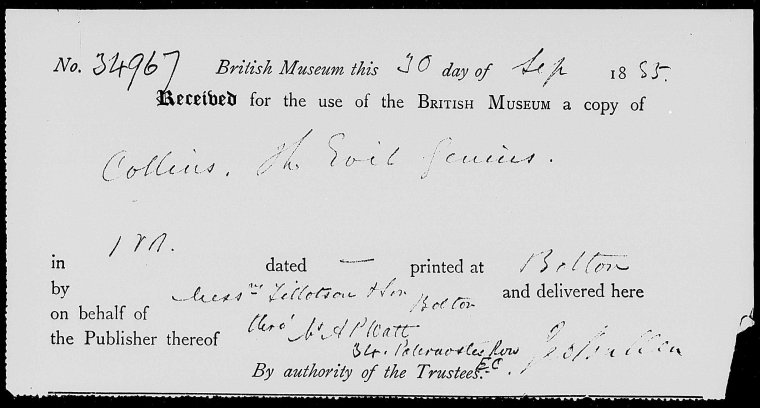 No. 34967 British Museum this 30 day of Sep 1885.
Received for the use of the British Museum a copy of
Collins. The Evil Genius.
in 1 vol. dated — printed at Bolton
by Messrs Tillotson & Son Bolton and delivered here
on behalf of
the Publisher thereof thro' Mr A P Watt
34. Paternoster Row
E.C.
By authority of the Trustees.